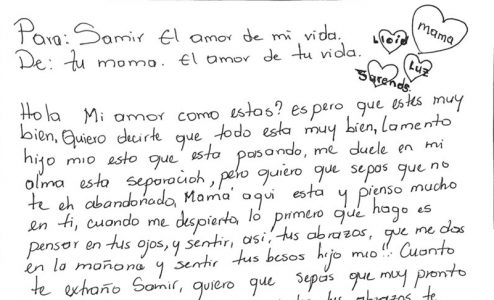 Para: Samir El amor de mi vida.
De: tu mama. El amor de tu vida.
Lloid
mama
Luz
Sarends.
Hola Mi amor como estas? espero que estes muy
bien, Quiero decirte que todo esta muy bien, Lamento
hijo mio esto que esta pasando, me duele en mi
alma esta separacion, pero quiero que sepas que no
te eh abandonado, Mamá aqui esta y pienso mucho
en ti, cuando me despierto, lo primero que hago es
pensar en tus ojos, y sentir, asi, tus abrazos, que me das
en la mañana y sentir tus besos hijo mio!! Cuanto
te extraño Samir, quiero que sepas que muy pronto
tus abrazos te